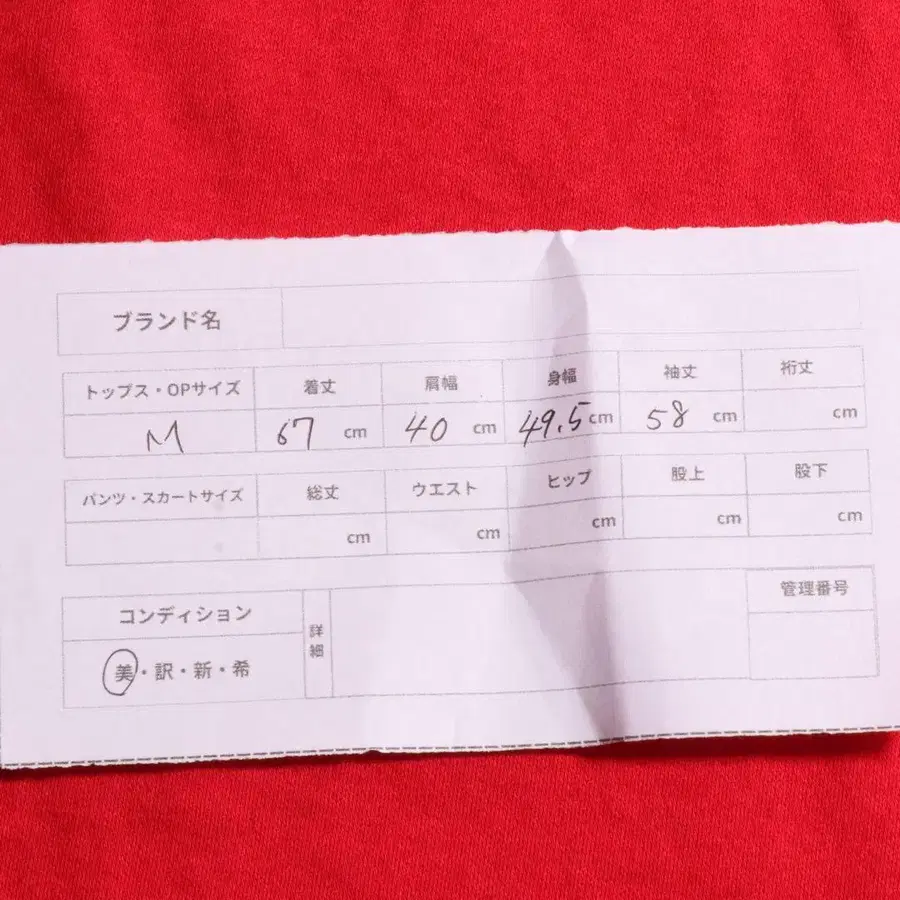 ブランド名
トップス・OPサイズ 着丈 肩幅 身幅 袖丈 裄丈
M 67 cm 40 cm 49.5 cm 58 cm cm
パンツ・スカートサイズ 総丈 ウエスト ヒップ 股上 股下
cm cm cm cm cm
コンディション 詳細 管理番号
美・訳・新・希